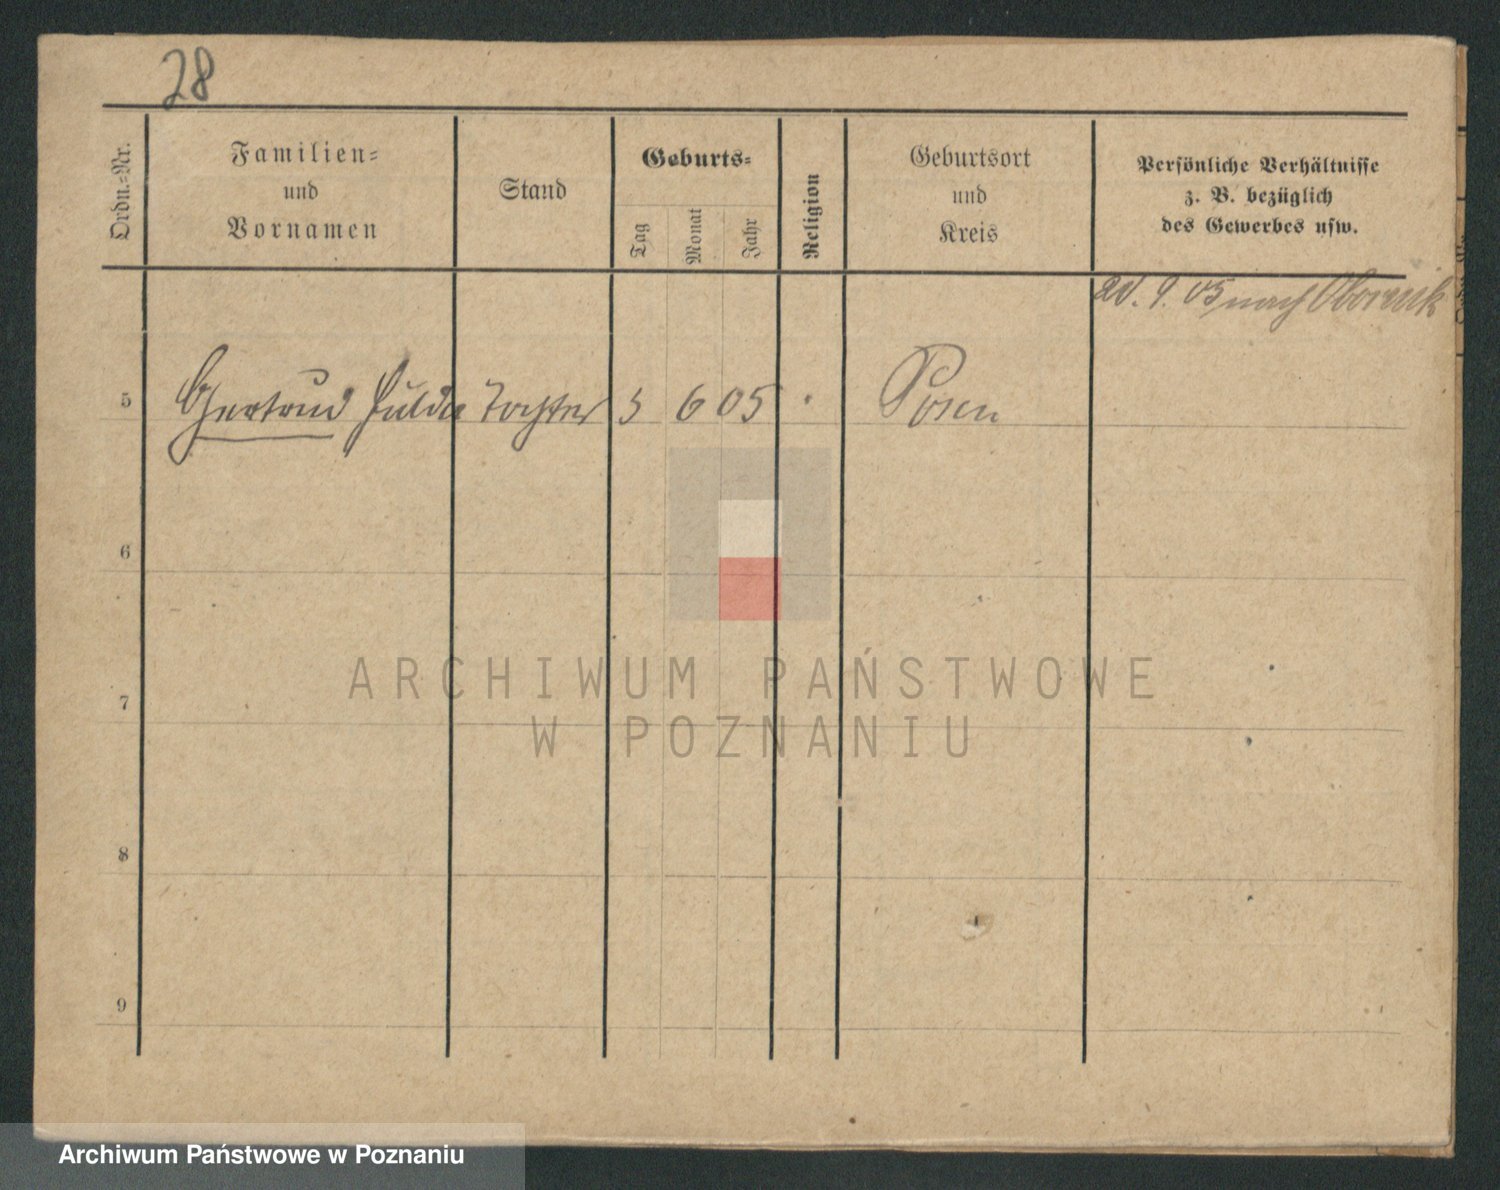 28
Ordn.-Nr.
Familien-
und
Vornamen
Stand
Geburts-
Tag
Monat
Jahr
Religion
Geburtsort
und
Kreis
Persönliche Verhältnisse
z. B. bezüglich
des Gewerbes usw.
9. 05 nach Obornik
5 Gertrud Hulda Tochter 5 6 05 Posen
6
7
8
9
ARCHIWUM PAŃSTWOWE
W POZNANIU
Archiwum Państwowe w Poznaniu